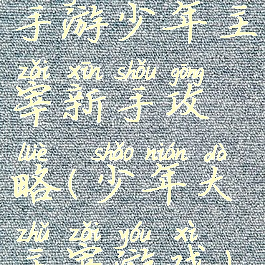 手游少年主
zǎi xīn shǒu gōng
宰新手攻
lüè shǎo nián dà
略(少年大
zhǔ zǎi yóu xì
主宰游戏)